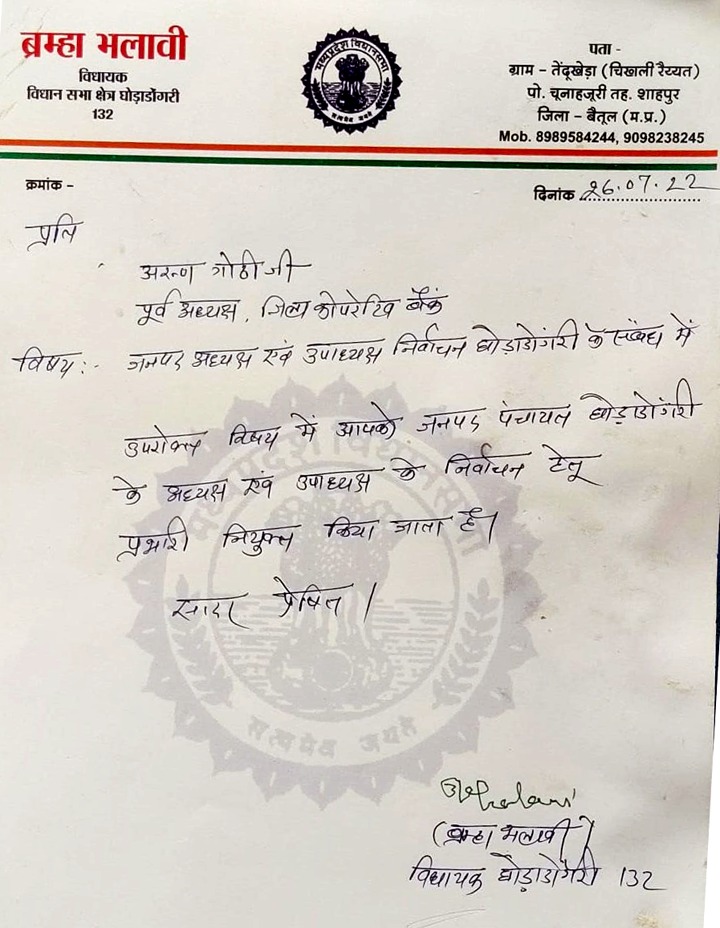 ब्रम्हा भलावी
विधायक
विधान सभा क्षेत्र घोड़ाडोंगरी
132
मध्यप्रदेश विधानसभा
सत्यमेव जयते
पता -
ग्राम – तेंदूखेड़ा (चिखली रैय्यत)
पो. चूनाहजूरी तह. शाहपुर
जिला – बैतूल (म.प्र.)
Mob. 8989584244, 9098238245
क्रमांक –
दिनांक 26.07.22
प्रति
अरुण गोठी जी
पूर्व अध्यक्ष, जिला कोपरेटिव बैंक
विषय:- जनपद अध्यक्ष एवं उपाध्यक्ष निर्वाचन घोड़ाडोंगरी के संबंध में
उपरोक्त विषय में आपको जनपद पंचायत घोड़ाडोंगरी
के अध्यक्ष एवं उपाध्यक्ष के निर्वाचन हेतू
प्रभारी नियुक्त किया जाता है।
सादर प्रेषित।
मध्यप्रदेश विधानसभा
सत्यमेव जयते
Bhalavi
(ब्रम्हा भलावी)
विधायक घोड़ाडोंगरी 132